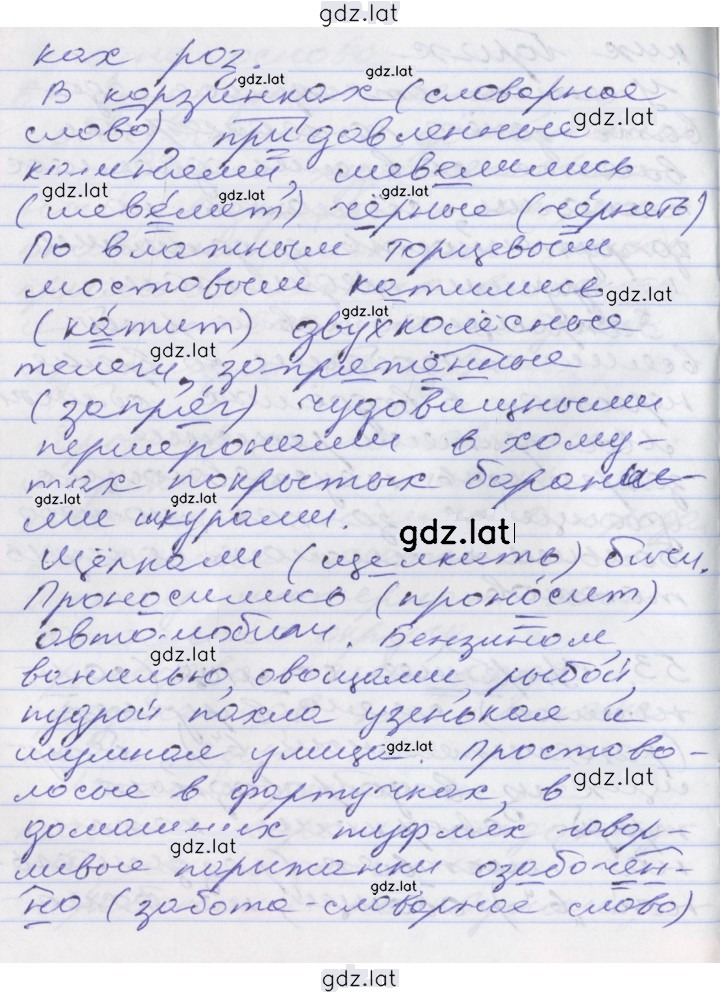 gdz.lat
ках роз.
gdz.lat gdz.lat
В корзинках (словарное
gdz.lat
слово), придавленные
камнями, шевелились
gdz.lat gdz.lat gdz.lat
(шевелит) чёрные (чернеть)
По влажным торцевым
мостовым катились
gdz.lat gdz.lat
(катит) двухколёсные
gdz.lat
телеги, запряжённые
(запряг) чудовищными
першеронами в хому-
тах покрытых бараньи-
gdz.lat gdz.lat
ми шкурами.
gdz.lat
Щёлкали (щелкать) бичи.
Проносились (проносит)
автомобили. Бензином,
gdz.lat
ванилью, овощами, рыбой,
пудрой пахла узенькая и
шумная улица. Простово-
gdz.lat
лосые в фартучках, в
gdz.lat
домашних туфлях говор-
gdz.lat
ливые парижанки озабочен-
gdz.lat
но (забота-словарное слово)
gdz.lat